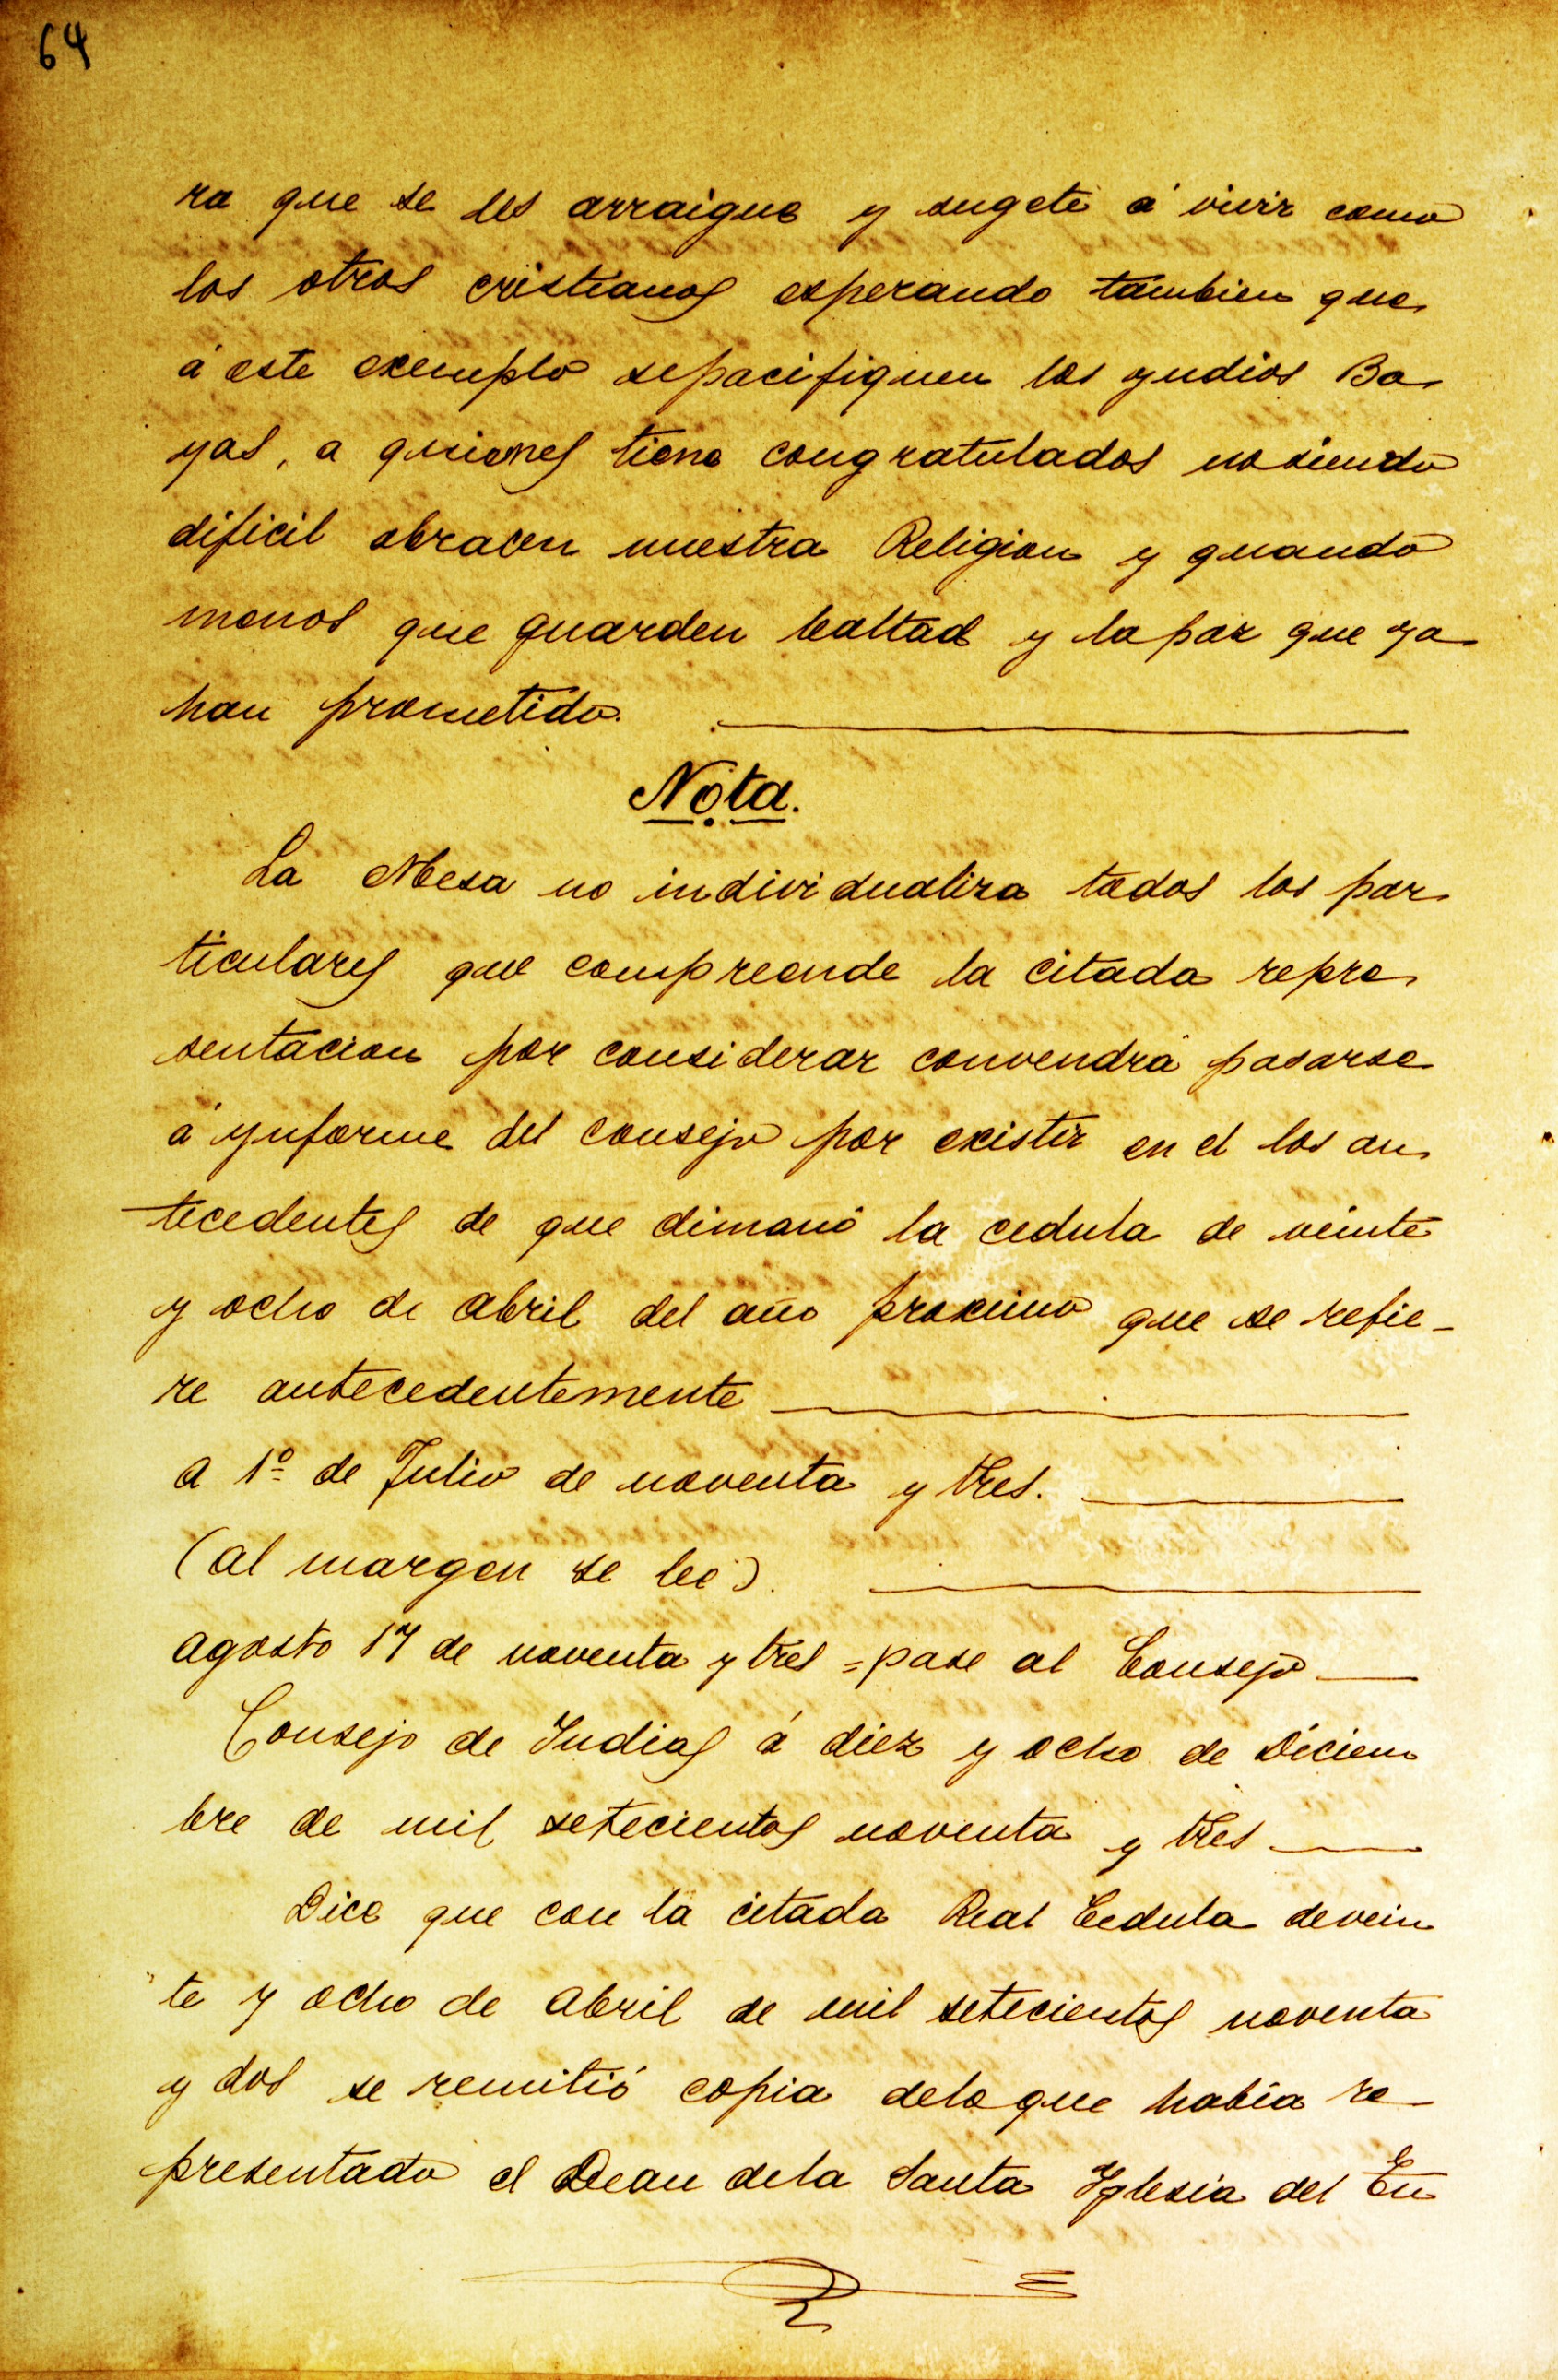 64
ra que se les arraigue y sugete á vivir como
los otros cristianos esperando tambien que
á este exemplo sepacifiquen los yndios Bo
yas, a quienes tiene congratulados nosiendo
dificil abracen nuestra Religion y quando
menos que guarden lealtad y lapaz que ya
han prometido.
Nota.
La Mesa no individualiza todos los par
ticulares que compreende la citada repre
sentacion por considerar convendrá pasarse
á ynforme del consejo por existir en el los an
tecedentes de que dimanó la cedula de veinte
y ocho de abril del año proximo que se refie-
re antecedentemente
a 1º de Julio de noventa y tres.
(al margen se lee).
agosto 17 de noventa y tres = pase al Consejo
Consejo de Indias á diez y ocho de Diciem
bre de mil setecientos noventa y tres
Dice que con la citada Real Cedula devein
te y ocho de abril de mil setecientos noventa
y dos se remitió copia delo que había re
presentado el Dean dela Santa Yglesia del Cu